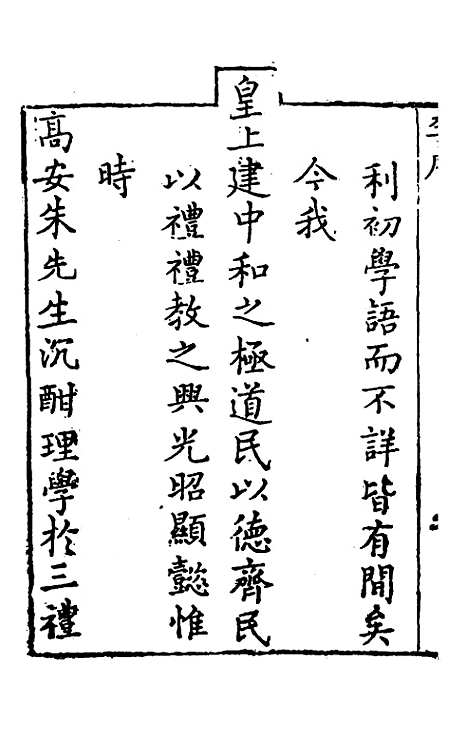 利初學語而不詳皆有間矣
今我
皇上建中和之極道民以德齊民
以禮禮教之興光昭顯懿惟
時
高安朱先生沉酣理學於三禮